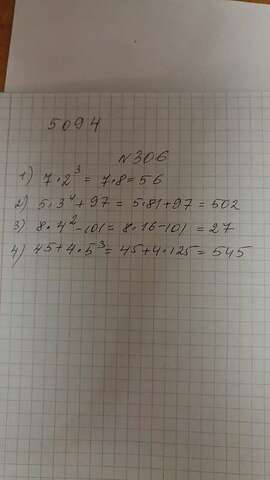 5094
№306
1) 7·2³ = 7·8 = 56
2) 5·3⁴ + 97 = 5·81 + 97 = 502
3) 8·4² - 101 = 8·16 - 101 = 27
4) 45 + 4·5³ = 45 + 4·125 = 545